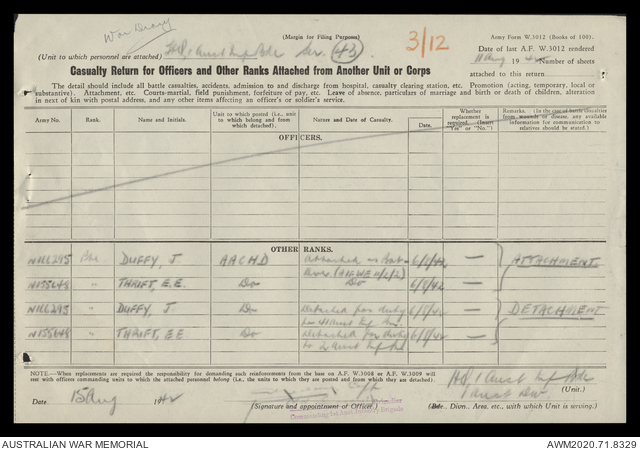 War Diary
(Margin for Filing Purposes)
Army Form W.3012 (Books of 100).
(Unit to which personnel are attached) HQ, 1 Aust Inf Bde Ser. (43)
3/12
Date of last A.F. W.3012 rendered
11 Aug 1942 Number of sheets
attached to this return
Casualty Return for Officers and Other Ranks Attached from Another Unit or Corps
The detail should include all battle casualties, accidents, admission to and discharge from hospital, casualty clearing station, etc. Promotion (acting, temporary, local or
substantive). Attachment, etc. Courts-martial, field punishment, forfeiture of pay, etc. Leave of absence, particulars of marriage and birth or death of children, alteration
in next of kin with postal address, and any other items affecting an officer's or soldier's service.
Army No. Rank. Name and Initials. Unit to which posted (i.e., unit to which belong and from which detached). Nature and Date of Casualty. Date. Whether replacement is required. (Insert "Yes" or "No.") Remarks. (In the case of battle casualties from wounds or disease, any available information for communication to relatives should be stated.)
OFFICERS.
OTHER RANKS.
N116295 Pte. DUFFY, J. AACHD Attached as Bat- 6/8/42 — ATTACHMENT
N155648 " THRIFT, E.E. Do Do 6/8/42 —
N116295 " DUFFY, J. Do Detached for duty 6/8/42 — DETACHMENT
to 41 Aust Inf
N155648 " THRIFT, EE Do Detached for duty 6/8/42 —
to 2 Aust Inf
NOTE.—When replacements are required the responsibility for demanding such reinforcements from the base on A.F. W.3008 or A.F. W.3009 will
rest with officers commanding units to which the attached personnel belong (i.e., the units to which they are posted and from which they are detached).
HQ, 1 Aust Inf Bde (Unit.)
Date 15 Aug 1942
1 Aust Div
(Signature and appointment of Officer.)
(Bde. Divn. Area, etc., with which Unit is serving.)
Brigade
AUSTRALIAN WAR MEMORIAL
AWM2020.71.8329